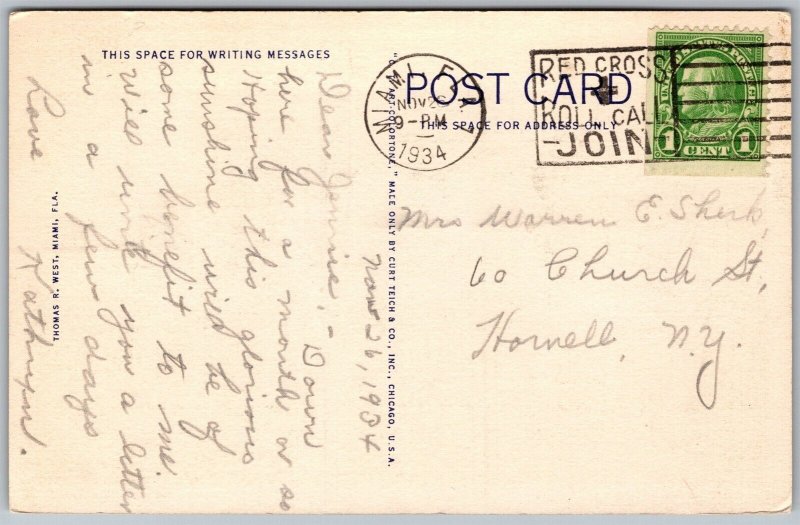 THIS SPACE FOR WRITING MESSAGES
POST CARD
THIS SPACE FOR ADDRESS ONLY
MIAMI, FLA.
NOV 26
9-PM
1934
RED CROSS
ROLL CALL
-JOIN
1 CENT 1
Nov 26, 1934
Dear Jennie, - Down
here for a month or so
Hoping this glorious
sunshine will be of
some benefit to me
will write you a letter
in a few days
Love
Kathryn.
Mrs Warren E. Sherk,
60 Church St,
Hornell, N.Y.
THOMAS R. WEST, MIAMI, FLA.
"C.T. ART-COLORTONE," MADE ONLY BY CURT TEICH & CO., INC., CHICAGO, U.S.A.